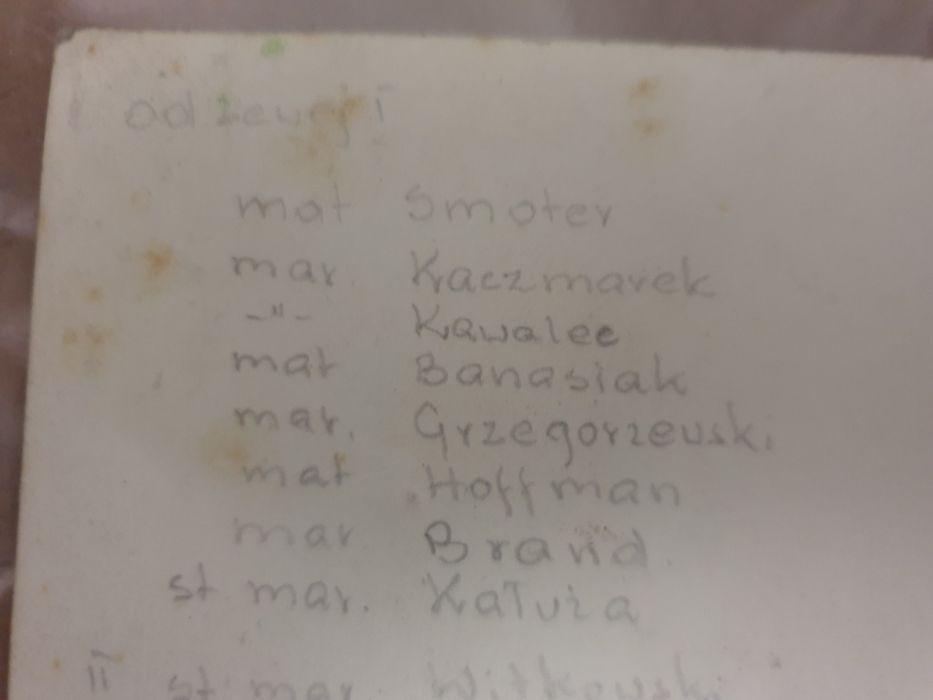 od lewej I
mat Smoter
mar. Kaczmarek
-"- Kawalec
mat Banasiak
mar. Grzegorzewski
mat Hoffman
mar Brand.
st mar. Kałuża
II st mar. Witkowski